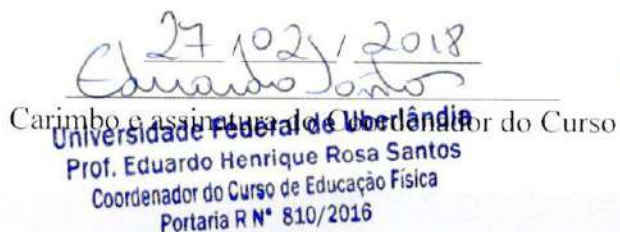 27/02/2018
Eduardo Santos
Carimbo e assinatura do Coordenador do Curso
Universidade Federal de Uberlândia
Prof. Eduardo Henrique Rosa Santos
Coordenador do Curso de Educação Física
Portaria R N° 810/2016